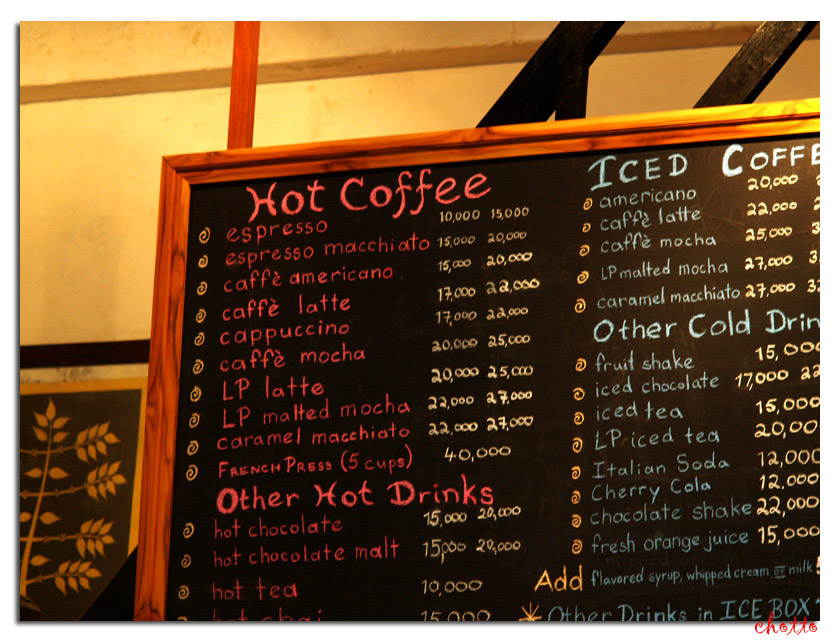 Hot Coffee
espresso 10,000 15,000
espresso macchiato 15,000 20,000
caffè americano 15,000 20,000
caffè latte 17,000 22,000
cappuccino 17,000 22,000
caffè mocha 20,000 25,000
LP latte 20,000 25,000
LP malted mocha 22,000 27,000
caramel macchiato 22,000 27,000
French Press (5 cups) 40,000
Other Hot Drinks
hot chocolate 15,000 20,000
hot chocolate malt 15,000 20,000
hot tea 10,000
hot chai 15,000
Iced Coffe
americano 20,000
caffè latte 22,000
caffè mocha 25,000
LP malted mocha 27,000
caramel macchiato 27,000
Other Cold Drin
fruit shake 15,000
iced chocolate 17,000 22
iced tea 15,000
LP iced tea 20,00
Italian Soda 12,000
Cherry Cola 12,000
chocolate shake 22,000
fresh orange juice 15,000
Add flavored syrup, whipped cream, or milk
Other Drinks in ICE BOX
chotto